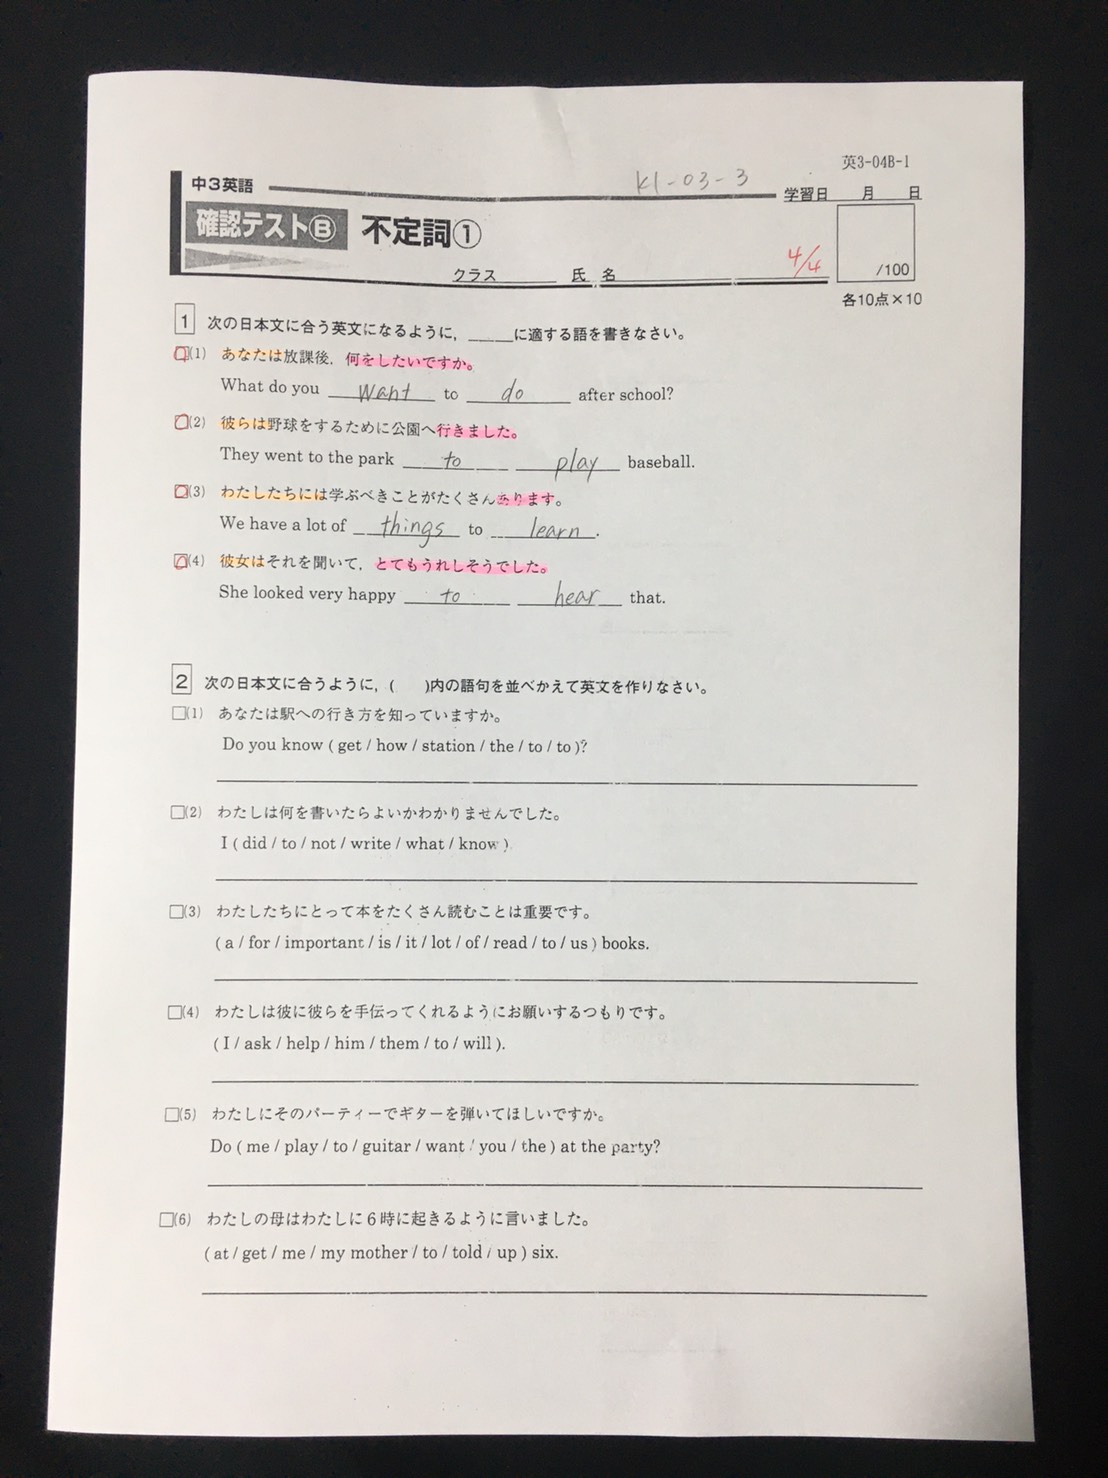 英3-04B-1
中3英語 K1-03-3 学習日 月 日
確認テストⒷ 不定詞①
クラス 氏名 4/4 /100
各10点×10
1 次の日本文に合う英文になるように,____に適する語を書きなさい。
□(1) あなたは放課後,何をしたいですか。
What do you want to do after school?
□(2) 彼らは野球をするために公園へ行きました。
They went to the park to play baseball.
□(3) わたしたちには学ぶべきことがたくさんあります。
We have a lot of things to learn.
□(4) 彼女はそれを聞いて,とてもうれしそうでした。
She looked very happy to hear that.
2 次の日本文に合うように,( )内の語句を並べかえて英文を作りなさい。
□(1) あなたは駅への行き方を知っていますか。
Do you know ( get / how / station / the / to / to )?
□(2) わたしは何を書いたらよいかわかりませんでした。
I ( did / to / not / write / what / know ).
□(3) わたしたちにとって本をたくさん読むことは重要です。
( a / for / important / is / it / lot / of / read / to / us ) books.
□(4) わたしは彼に彼らを手伝ってくれるようにお願いするつもりです。
( I / ask / help / him / them / to / will ).
□(5) わたしにそのパーティーでギターを弾いてほしいですか。
Do ( me / play / to / guitar / want / you / the ) at the party?
□(6) わたしの母はわたしに6時に起きるように言いました。
( at / get / me / my mother / to / told / up ) six.